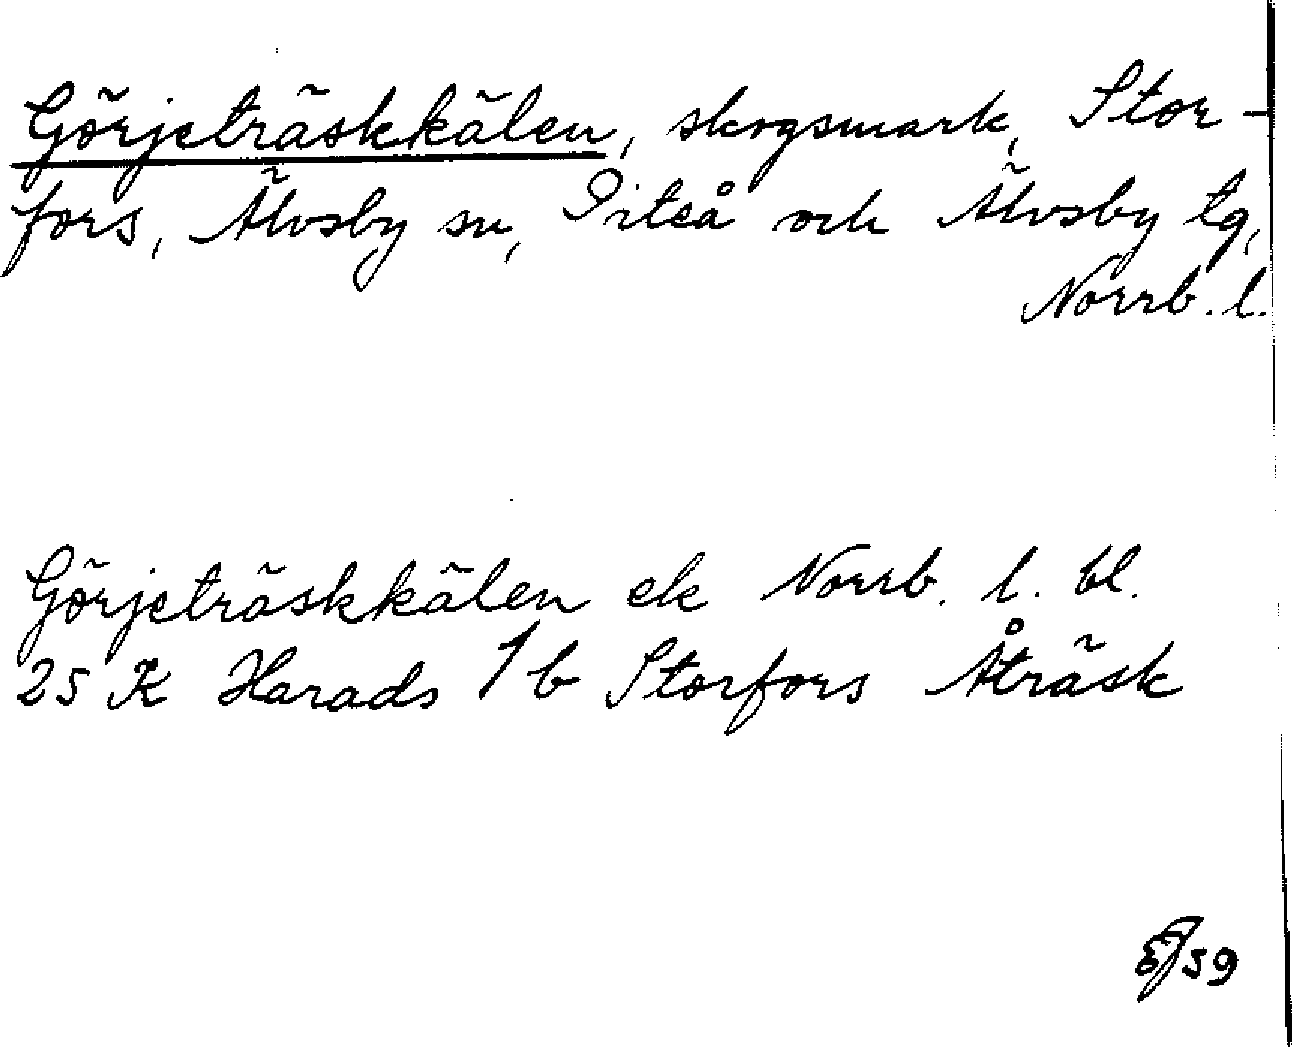 Görjeträskkälen, skogsmark, Stor-
fors, Älvsby sn, Piteå och Älvsby tg,
Norrb. l.
Görjeträskkälen ek Norrb. l. bl.
25 K Harads 1 b Storfors Åträsk
59